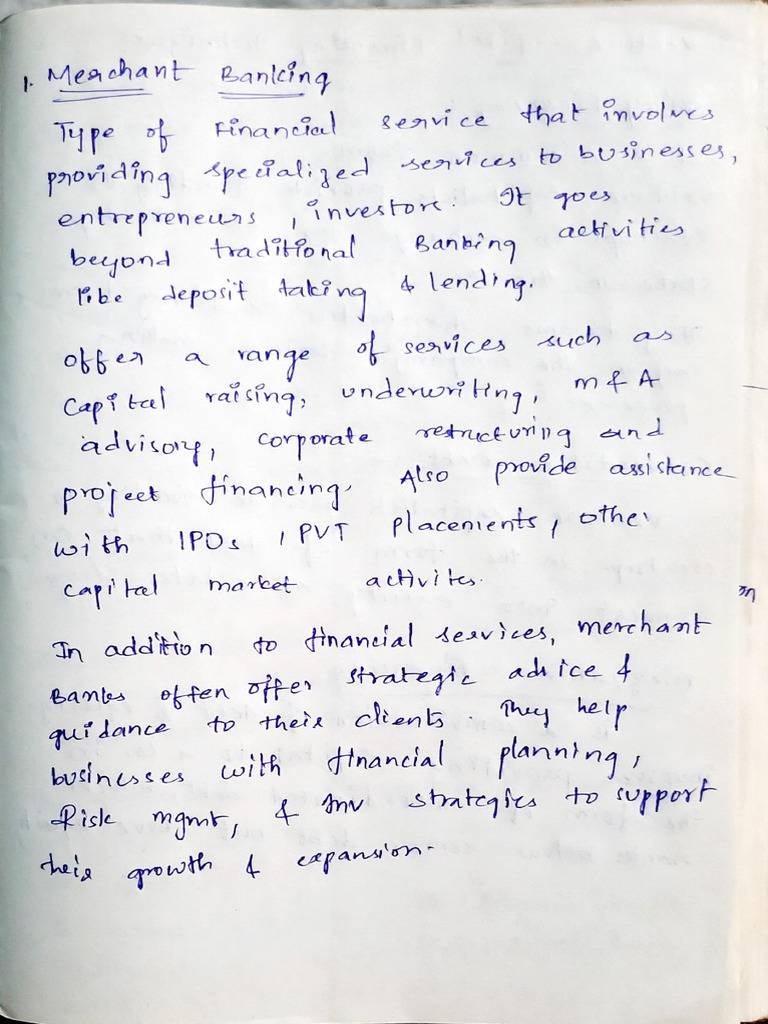 1. Merchant Banking
Type of Financial service that involves
providing specialized services to businesses,
entrepreneurs, investors. It goes
beyond traditional Banking activities
like deposit taking & lending.
offer a range of services such as
Capital raising, underwriting, M & A
advisory, corporate restructuring and
project financing. Also provide assistance
with IPOs, PVT placements, other
capital market activites.
In addition to financial services, merchant
Banks often offer strategic advice &
guidance to their clients. They help
businesses with financial planning,
Risk mgmt, & Inv strategies to support
their growth & expansion.